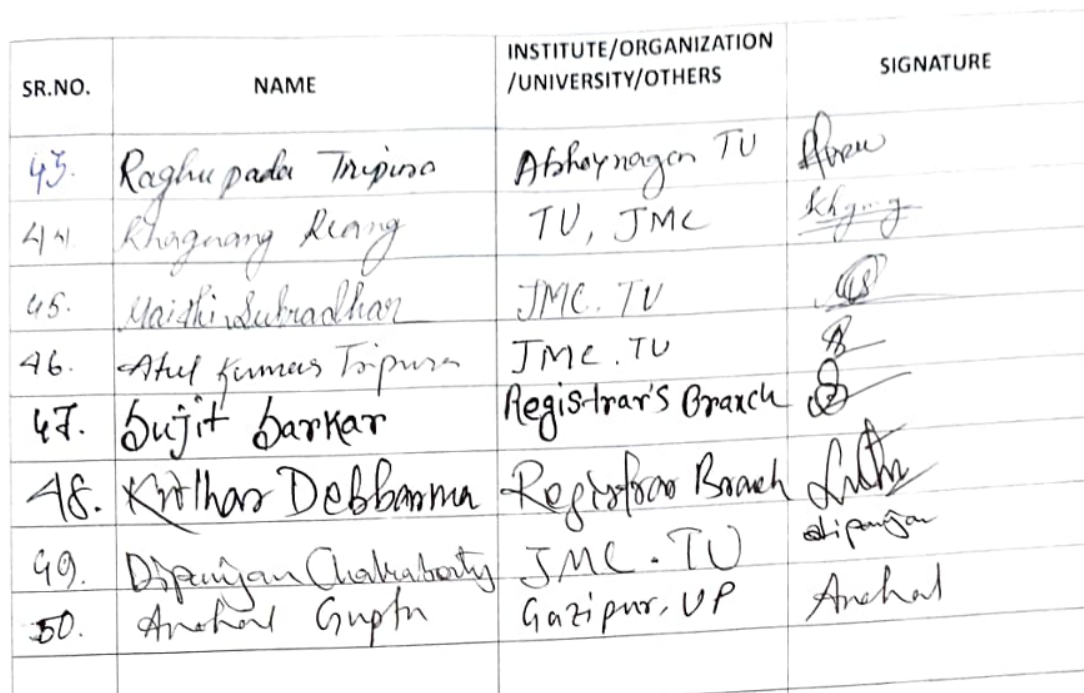 SR.NO. NAME INSTITUTE/ORGANIZATION /UNIVERSITY/OTHERS SIGNATURE
43. Raghupada Tripura Abhoynagar TU
44. Khagnang Reang TU, JMC
45. Subradhar JMC. TU
46. Atul Kumar Tripura JMC. TU
47. Sujit Sarkar Registrar's Branch
48. Debbarma Registrar Branch
49. Dipanjan Chakraborty JMC. TU Dipanjan
50. Anchal Gupta Gazipur, UP Anchal